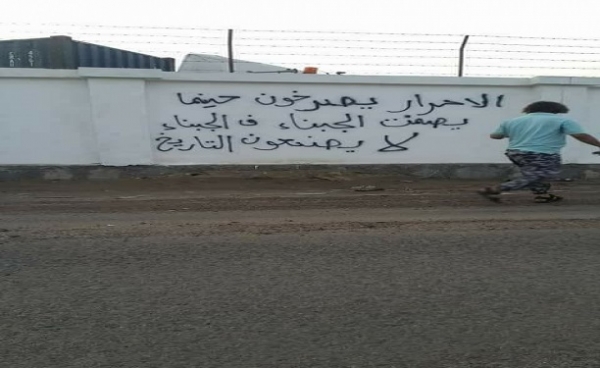 الاحرار يصرخون حينما
يصمت الجبناء ف الجبناء
لا يصنعون التاريخ